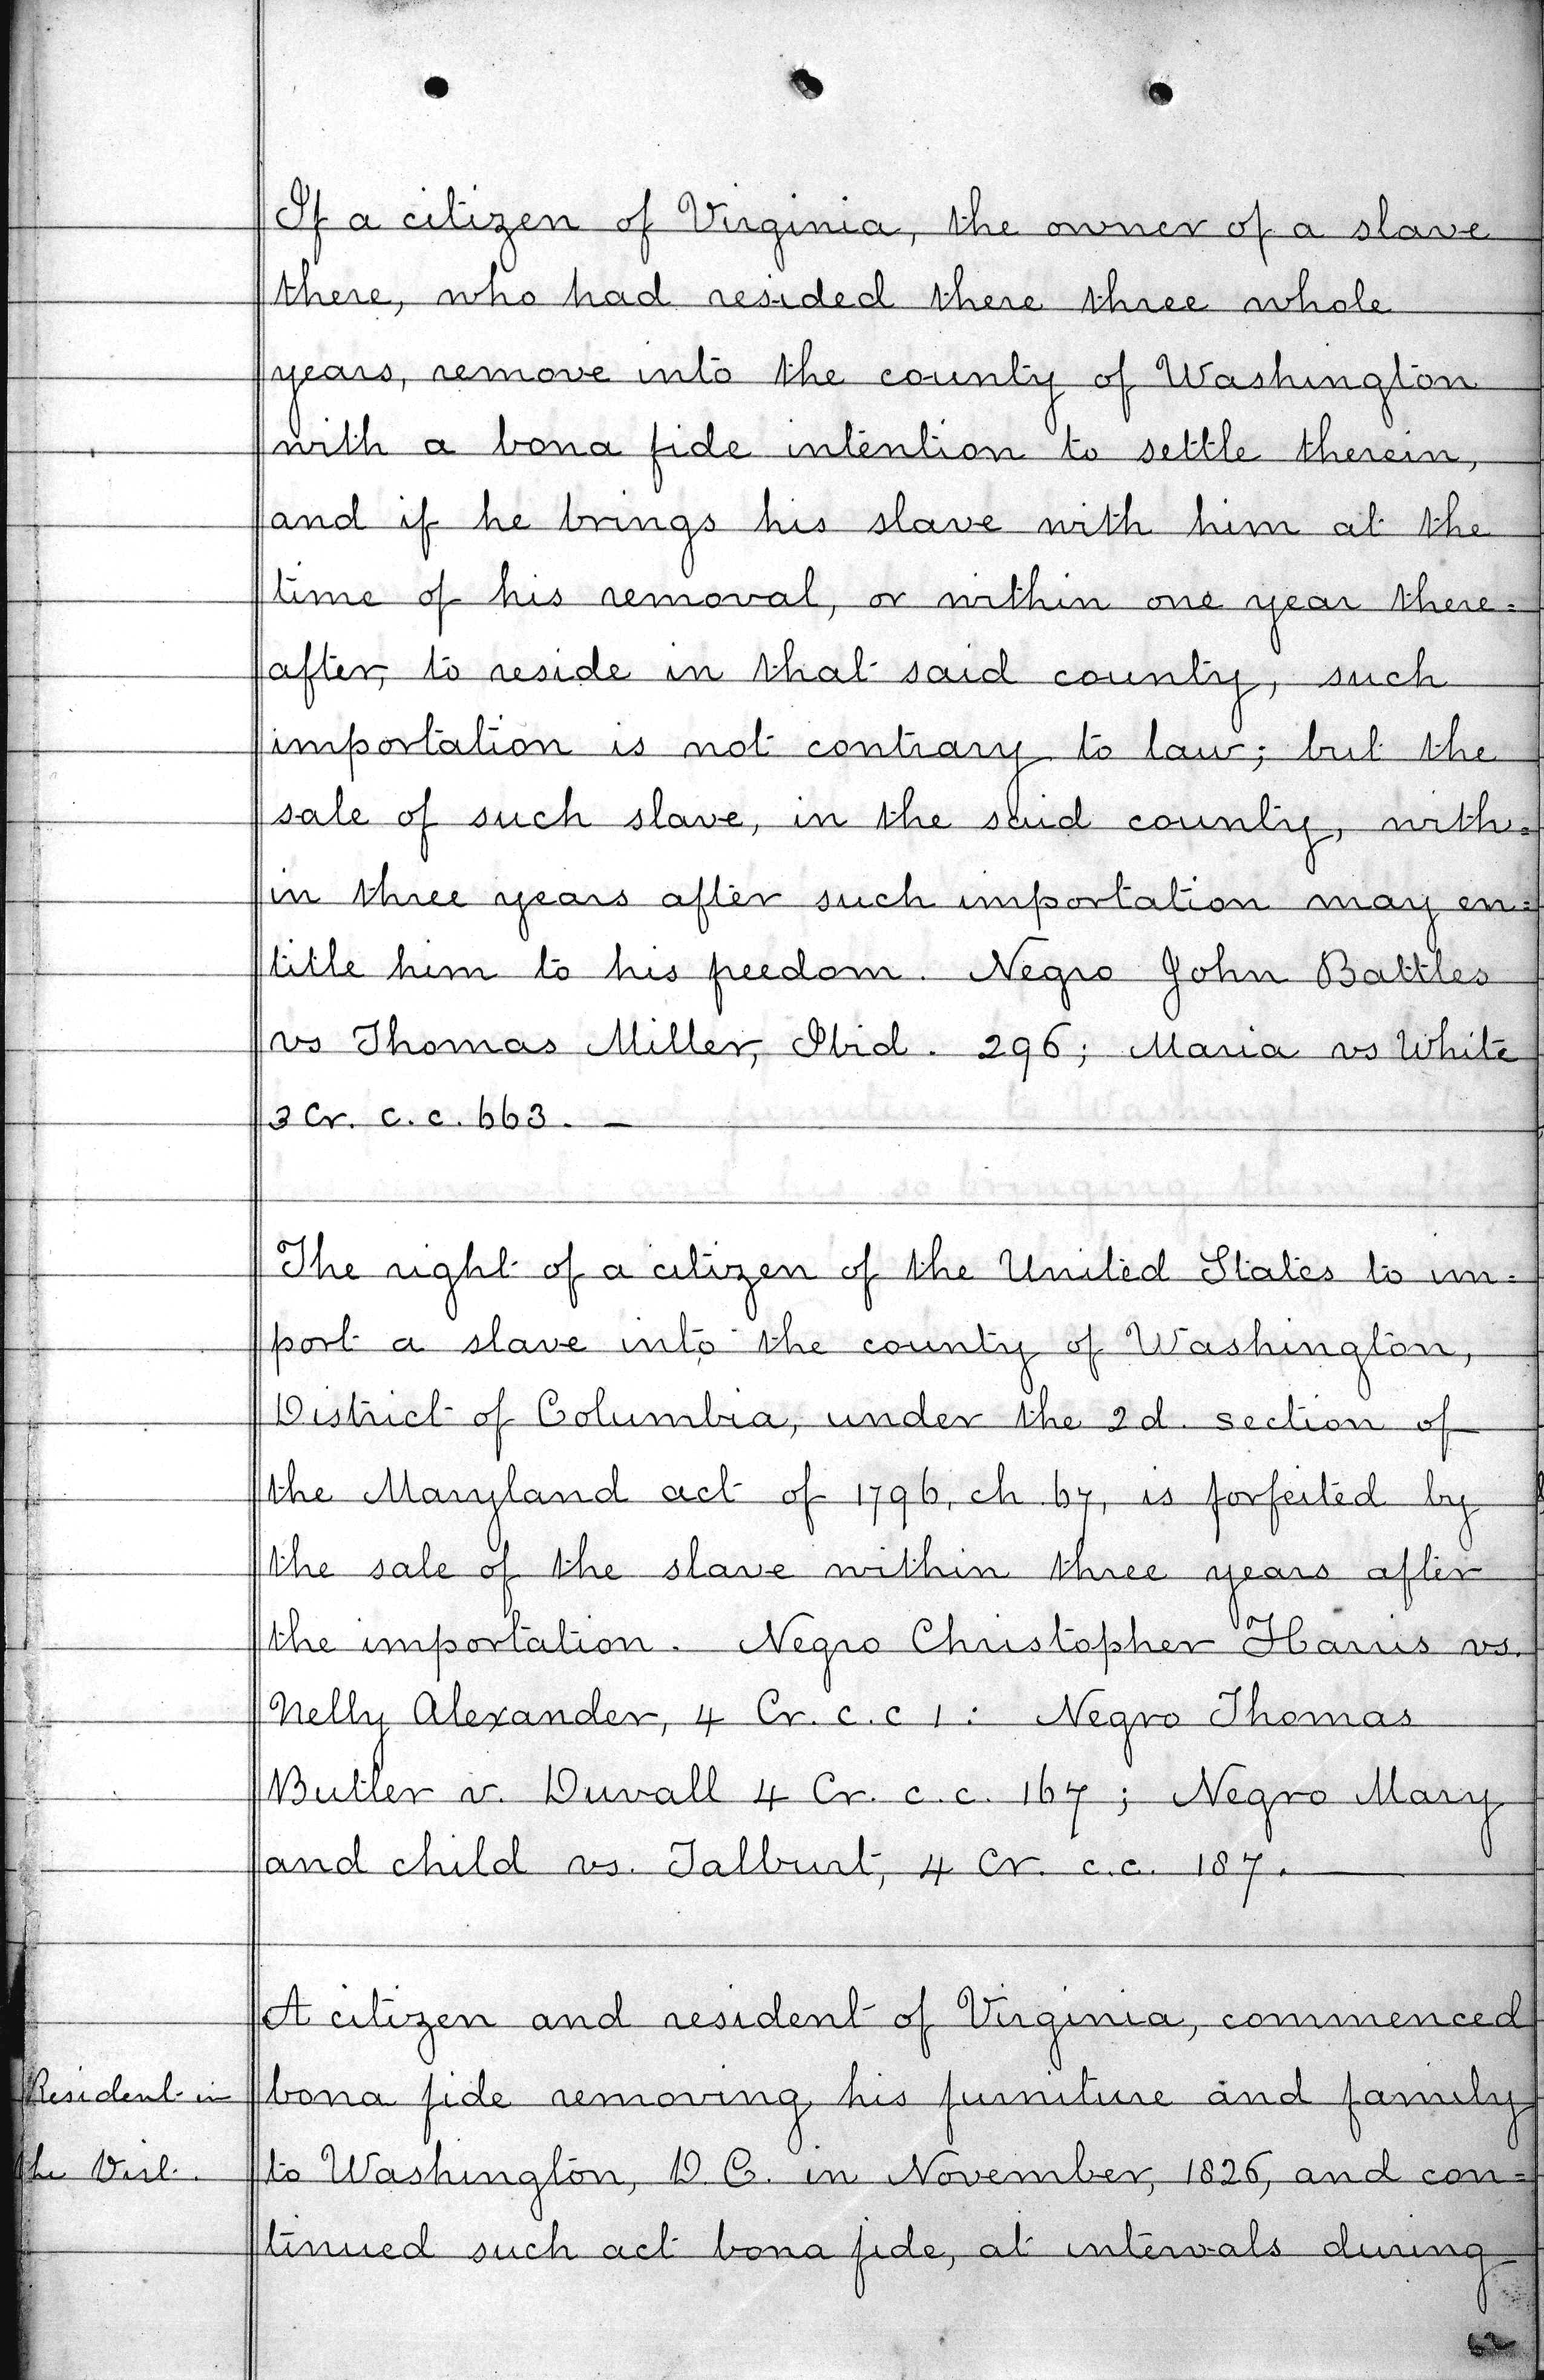 If a citizen of Virginia, the owner of a slave
there, who had resided there three whole
years, remove into the county of Washington
with a bona fide intention to settle therein,
and if he brings his slave with him at the
time of his removal, or within one year there=
after, to reside in that said county, such
importation is not contrary to law; but the
sale of such slave, in the said county, with=
in three years after such importation may en=
title him to his freedom. Negro John Battles
vs Thomas Miller, Ibid. 296; Maria vs White
3 Cr. c.c. 663. –
The right of a citizen of the United States to im=
port a slave into the county of Washington,
District of Columbia, under the 2d. section of
the Maryland act of 1796, ch. 67, is forfeited by
the sale of the slave within three years after
the importation. Negro Christopher Harris vs.
Nelly Alexander, 4 Cr. c.c 1: Negro Thomas
Butler v. Duvall 4 Cr. c.c. 167; Negro Mary
and child vs. Talburt, 4 Cr. c.c. 187. —
A citizen and resident of Virginia, commenced
Resident in
bona fide removing his furniture and family
the Dist.
to Washington, D.C. in November, 1826, and con=
tinued such act bona fide, at intervals during
62